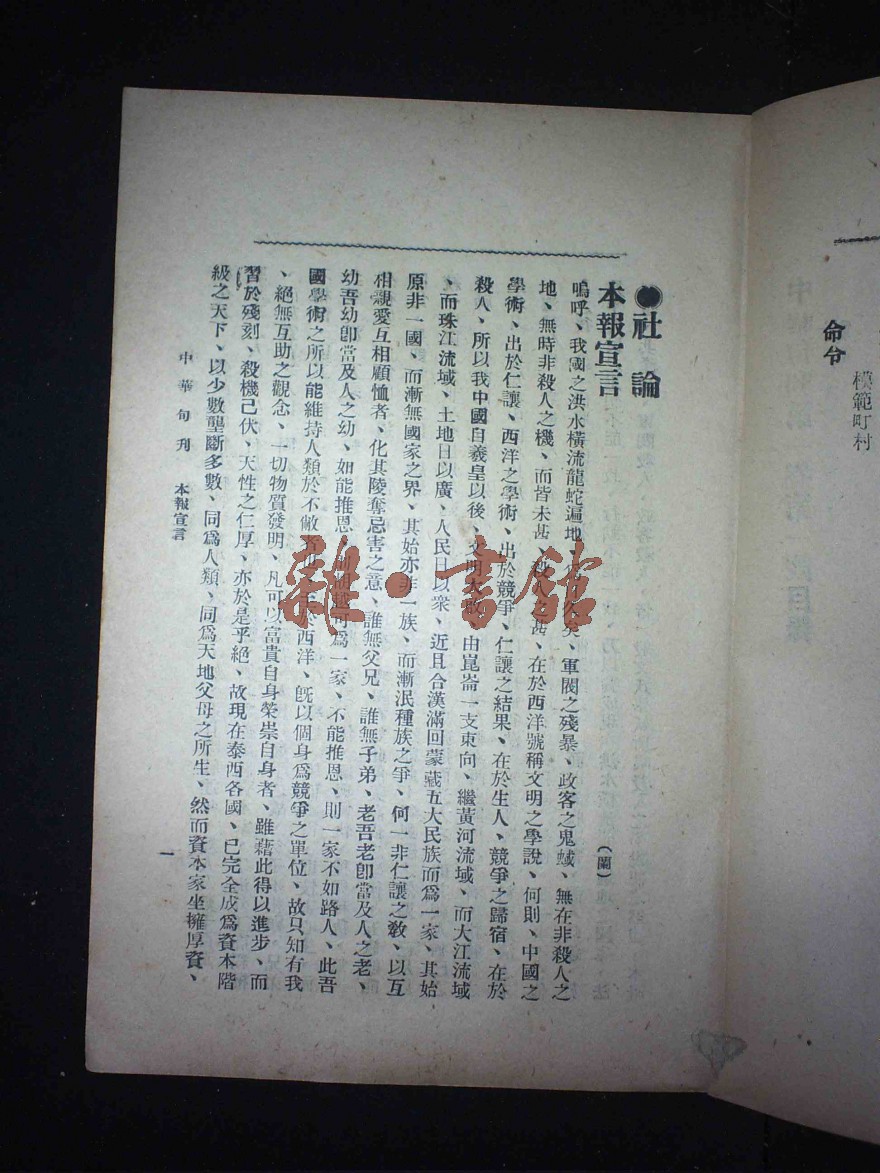 命令
模範町村
●社論
本報宣言
(蘭)
嗚呼、我國之洪水橫流龍蛇遍地、矣、軍閥之殘暴、政客之鬼蜮、無在非殺人之
地、無時非殺人之機、而皆未甚、殺人之甚、在於西洋號稱文明之學說、何則、中國之
學術、出於仁讓、西洋之學術、出於競爭、仁讓之結果、在於生人、競爭之歸宿、在於
殺人、所以我中國自羲皇以後、文明大啟、由崑崙一支東向、繼黃河流域、而大江流域
、而珠江流域、土地日以廣、人民日以衆、近且合漢滿回蒙藏五大民族而爲一家、其始
原非一國、而漸無國家之界、其始亦非一族、而漸泯種族之爭、何一非仁讓之敎、以互
相親愛互相顧恤者、化其陵奪忌害之意、誰無父兄、誰無子弟、老吾老卽當及人之老、
幼吾幼卽當及人之幼、如能推恩、可爲一家、不能推恩、則一家不如路人、此吾
國學術之所以能維持人類於不敝者也、於西洋、旣以個身爲競爭之單位、故只知有我
、絕無互助之觀念、一切物質發明、凡可以富貴自身榮崇自身者、雖藉此得以進步、而
習於殘刻、殺機已伏、天性之仁厚、亦於是乎絕、故現在泰西各國、已完全成爲資本階
級之天下、以少數壟斷多數、同爲人類、同爲天地父母之所生、然而資本家坐擁厚資、
中華旬刊 本報宣言
一
雜·書館